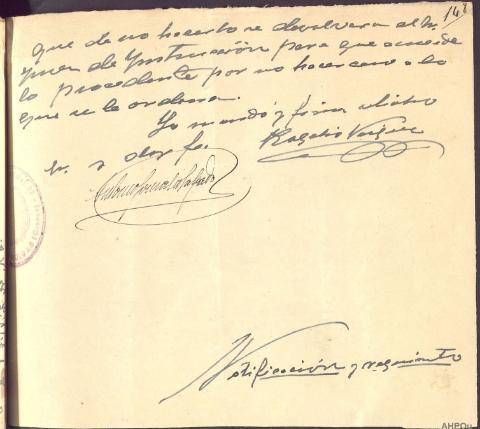 que de no hacerlo se devolverá al Sr.
Juez de Instrucción para que acuerde
lo procedente por no hacer caso a lo
que se le ordena.
Lo mandó y firma dicho
Sr. y doy fe.
Notificación y requerimiento
AHPOu